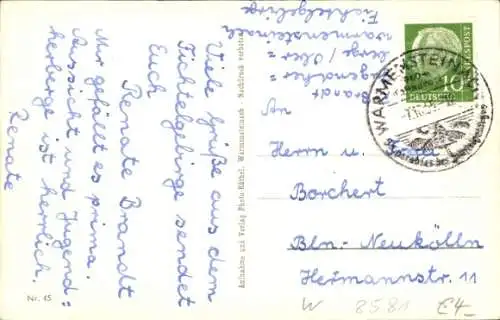 Viele Grüße aus dem
Fichtelgebirge sendet
Euch
Renate Brandt
Mir gefällt es prima.
Aussicht und Jugend=
herberge ist herrlich.
Renate
Nr. 45
Aufnahme und Verlag Photo Warmensteinach - Nachdruck verboten
Brandt
Jugendher=
berge / Ober=
warmensteinach
Fichtelgebirge
An
Herrn u.
Borchert
Bln.-Neukölln
Hermannstr. 11
W 8581 E4-
WARMENSTEINACH
10
DEUTSCHE BUNDESPOST